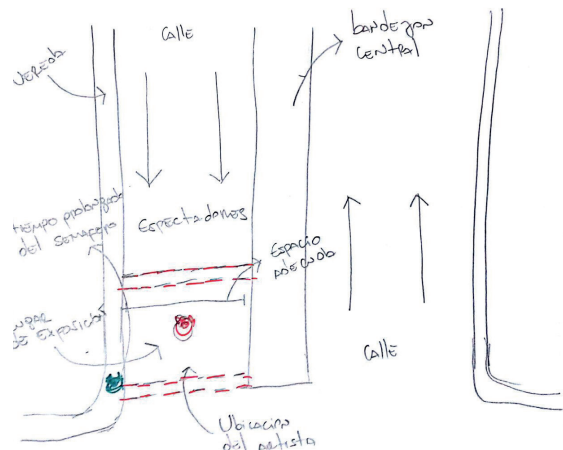 CALLE
bandejon
CENTRAL
VEREDA
tiempo prolongado
del semaforo
ESPECTADORES
ESPACIO
ADECUADO
LUGAR
DE EXPOSICION
CALLE
Ubicacion
del artista